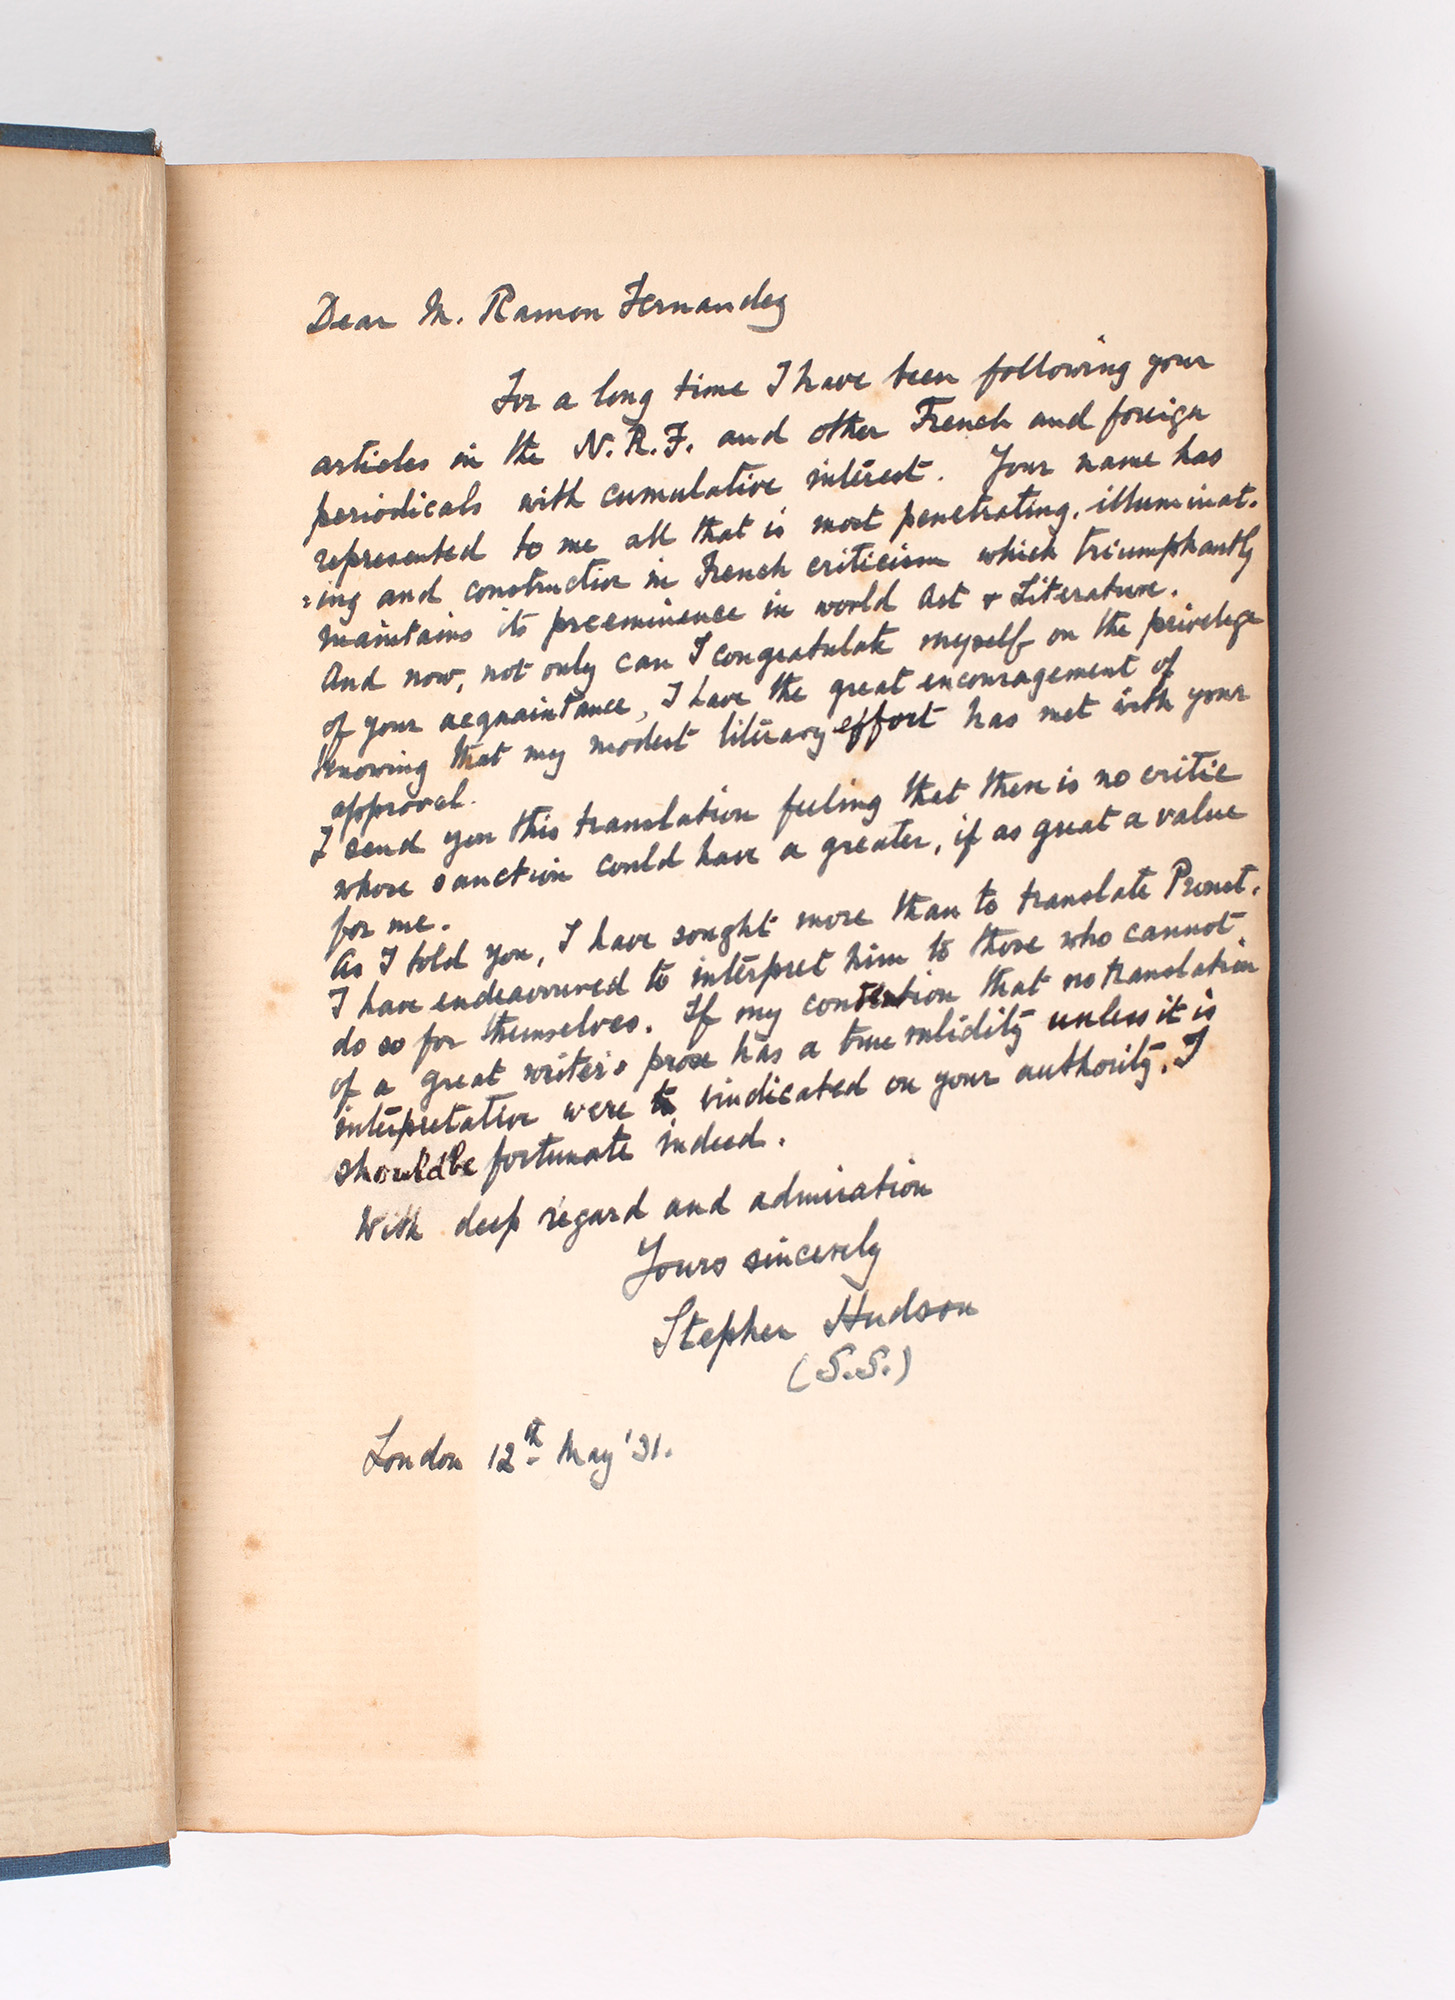 Dear M. Ramon Fernandez
For a long time I have been following your
articles in the N.R.F. and other French and foreign
periodicals with cumulative interest. Your name has
represented to me all that is most penetrating, illuminat-
=ing and constructive in French criticism which triumphantly
maintains its preeminence in world Art & Literature.
And now, not only can I congratulate myself on the privelege
of your acquaintance, I have the great encouragement of
knowing that my modest literary effort has met with your
approval.
I send you this translation feeling that there is no critic
whose sanction could have a greater, if as great a value
for me.
As I told you, I have sought more than to translate Proust.
I have endeavoured to interpret him to those who cannot
do so for themselves. If my contention that no translation
of a great writer's prose has a true validity unless it is
interpretative were vindicated on your authority, I
should be fortunate indeed.
With deep regard and admiration
Yours sincerely
Stephen Hudson
(S.S.)
London 12th May '31.